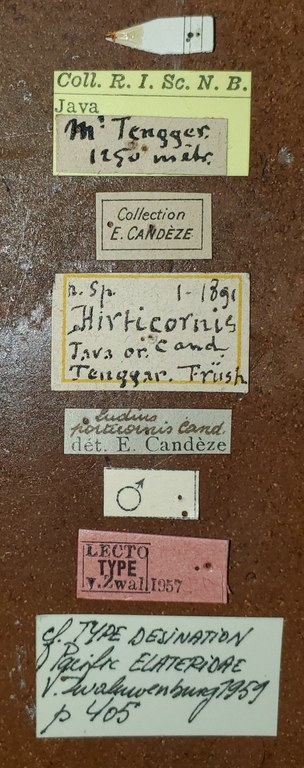 Coll. R. I. Sc. N. B.
Java
Mt Tengger.
1250 mètr.
Collection
E. CANDÈZE
n. Sp. 1-1891
Hirticornis
Java or. Cand.
Tenggar. Früsh
Ludius
Cand.
dét. E. Candèze
♂
LECTO
TYPE
v. Zwal. 1957
cf. TYPE DESINATION
of Pacific ELATERIDAE
V. Zwaluwenburg 1959
p 405